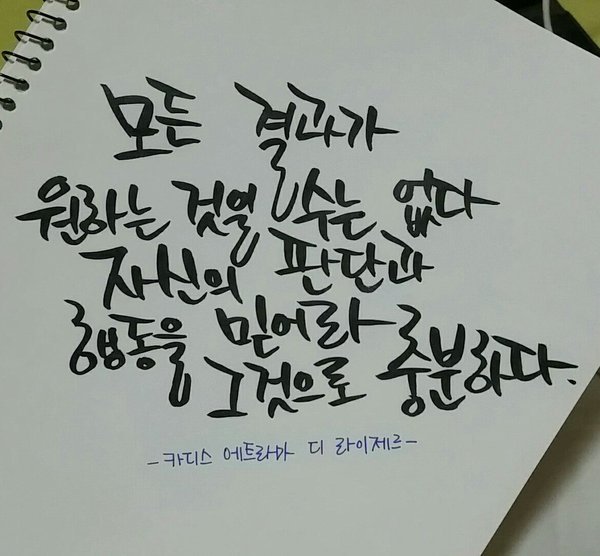 모든 결과가
원하는 것일 수는 없다
자신의 판단과
행동을 믿어라
그것으로 충분하다.
-카디스 에트라마 디 라이제르-